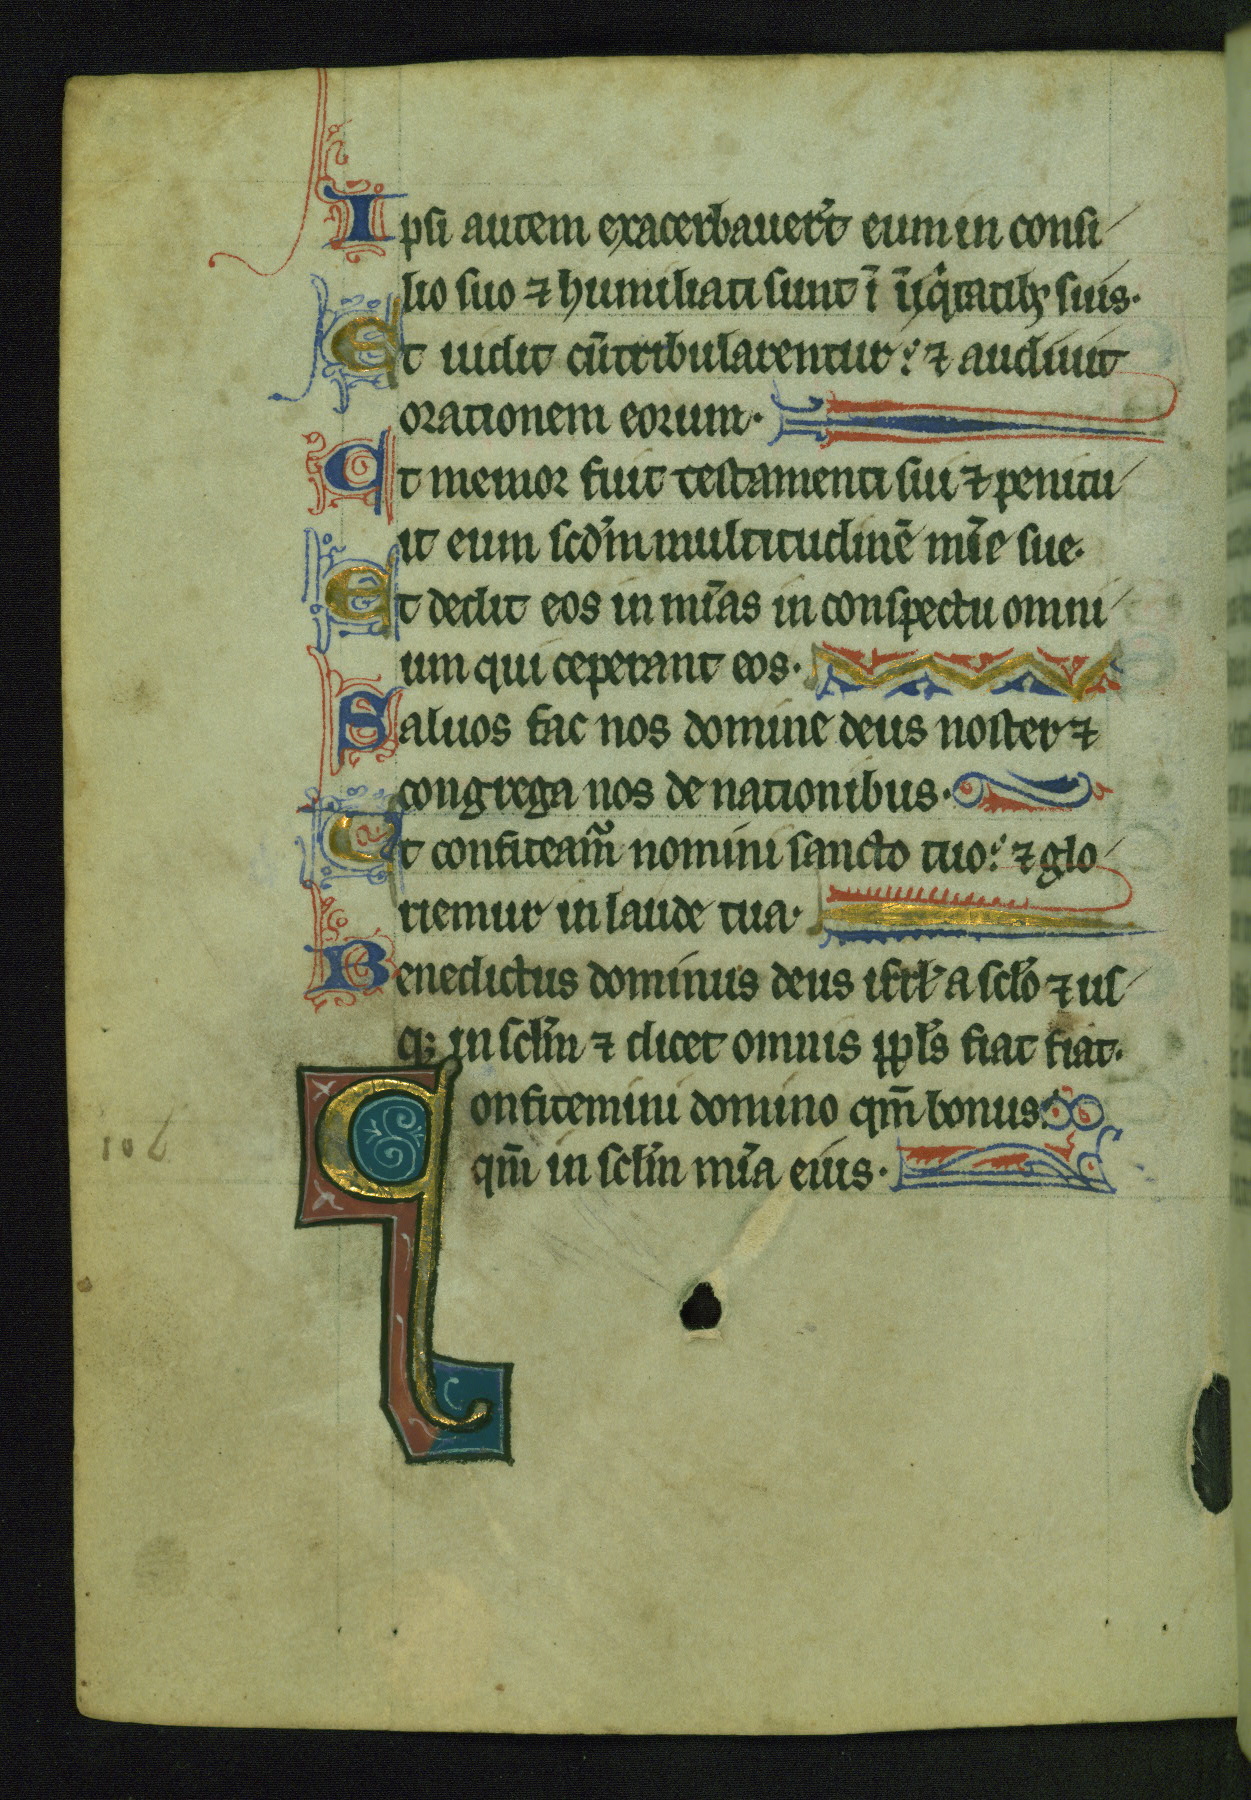 Ipsi autem exacerbauer̄t eum in consi
lio suo ⁊ humiliati sunt ī iiq̄itatib; suis.
Et uidit cū tribularentur: ⁊ audiuit
orationem eorum.
Et memor fuit testamenti sui ⁊ penitu
it eum scd̄m multitudinē mīe sue.
Et dedit eos in mīas in conspectu omni
um qui ceperant eos.
Saluos fac nos domine deus noster ⁊
congrega nos de nationibus.
Et confiteam̄ nomini sancto tuo: ⁊ glo
riemur in laude tua.
Benedictus dominus deus isrl̄ a scl̄o ⁊ us
q; in scl̄m ⁊ dicet omnis ppl̄s fiat fiat.
onfitemini domino qm̄ bonus:
qm̄ in scl̄m mīa eius.